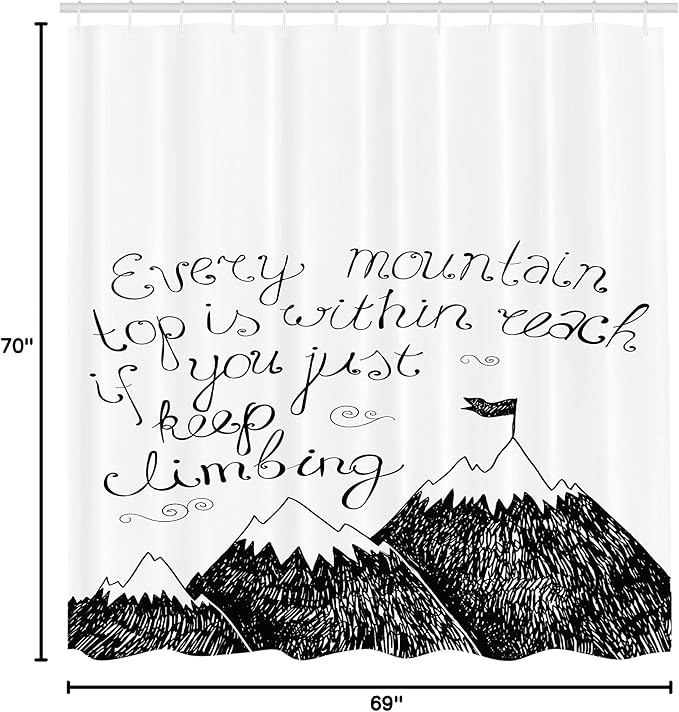 Every mountain
top is within reach
if you just
keep
climbing
70"
69"